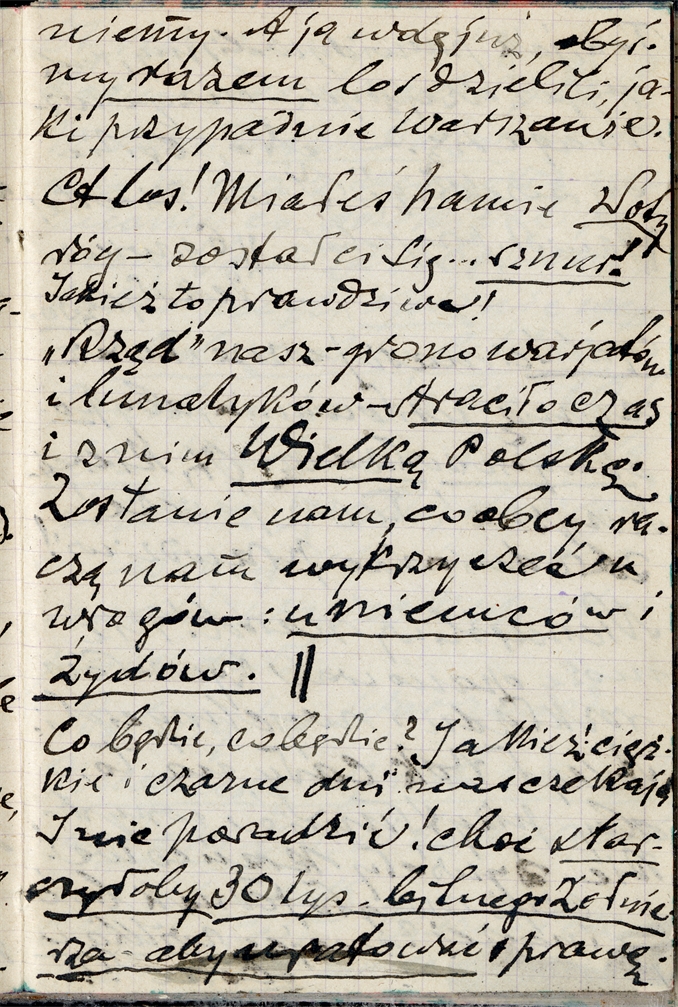 niemy. A ja wdę już, abyś-
my razem los dzielili, ja-
ki przypadnie Warszawie.
Ot los! Miałeś hamie złoty
róg – został ci się... sznur!
Jakież to prawdziwe!
„Rząd” nasz – grono warjatów
i lunatyków – straciło czas
i z nim Wielką Polskę.
Zostanie nam, co obcy ra-
czą nam wykrzyczeć u
wrogów: u niemców i
żydów. ||
Co będzie, co będzie? Jakież cięż-
kie i czarne dni nas czekają
I nie poradzić! choć star-
czyłoby 30 tys. bitnego żołnie-
rza – aby uratować sprawę.